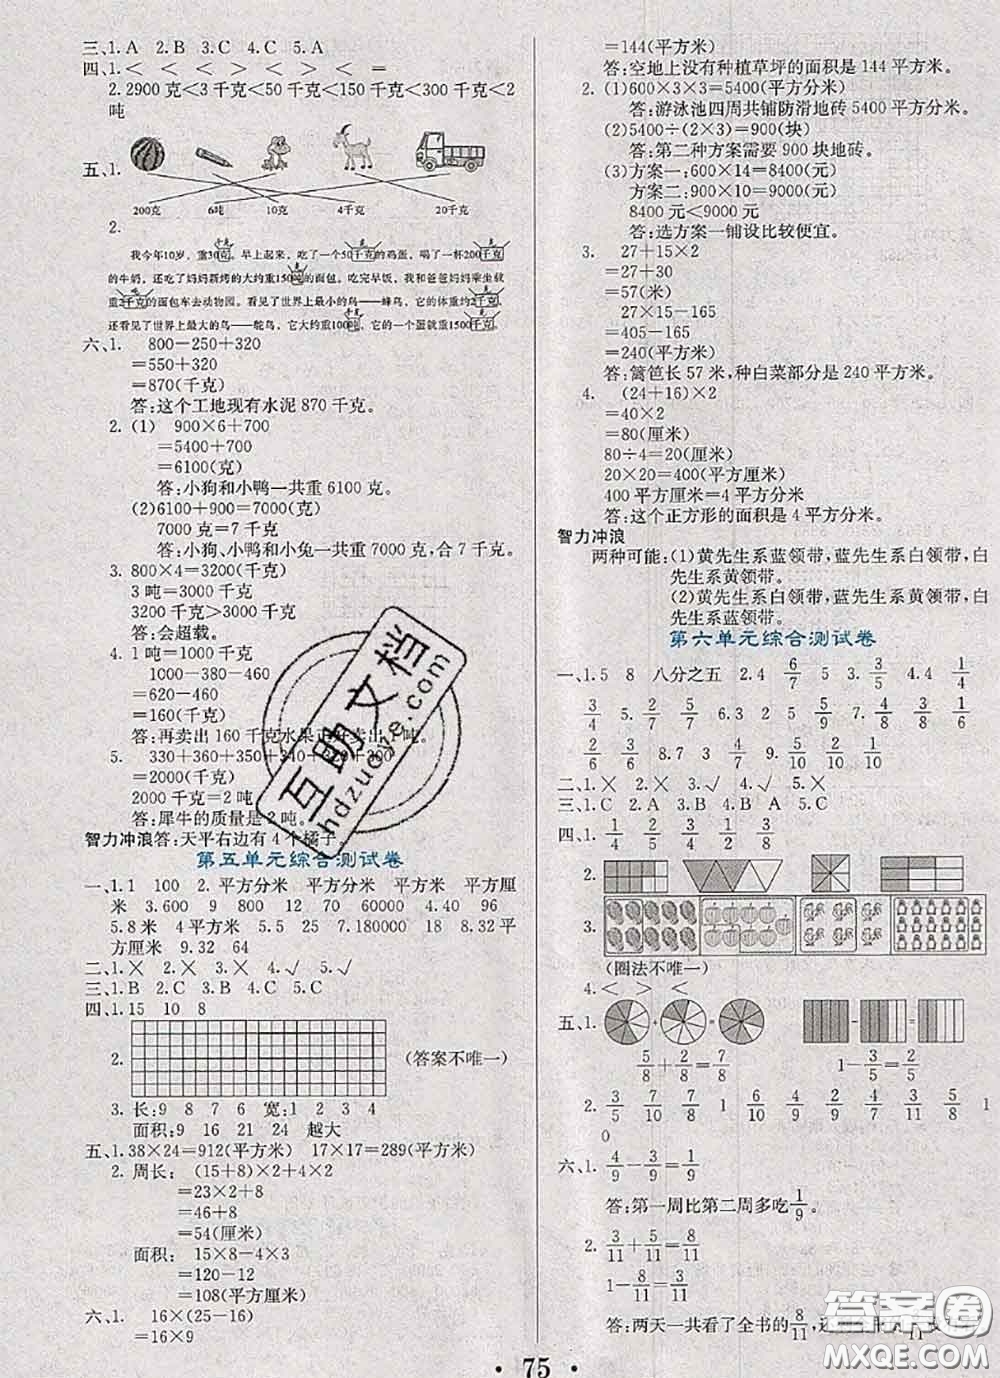 三、1. A 2. B 3. C 4. C 5. A
四、1. < < < > > < =
2. 2900 克<3 千克<50 千克<150 千克<300 千克<2
吨
五、1.
200克 6吨 10克 4千克 20千克
2.
我今年10岁，重30克。早上起来，吃了一个50千克的鸡蛋，喝了一杯200千克
的牛奶，还吃了妈妈新烤的大约重100吨的面包。吃完早饭，我和爸爸妈妈乘坐载
重2千克的面包车去动物园。看见了世界上最小的鸟——蜂鸟，它的体重约2千克，
还看见了世界上最大的鸟——鸵鸟，它大约重100吨，它的一个蛋就重1500千克。
六、1. 800-250+320
=550+320
=870(千克)
答:这个工地现有水泥 870 千克。
2. (1) 900×6+700
=5400+700
=6100(克)
答:小狗和小鸭一共重 6100 克。
(2)6100+900=7000(克)
7000 克=7 千克
答:小狗、小鸭和小兔一共重 7000 克,合 7 千克。
3. 800×4=3200(千克)
3 吨=3000 千克
3200 千克>3000 千克
答:会超载。
4. 1 吨=1000 千克
1000-380-460
=620-460
=160(千克)
答:再卖出 160 千克水果正好卖出 1 吨。
5. 330+360+350+340+300+320
=2000(千克)
2000 千克=2 吨
答:犀牛的质量是 2 吨。
智力冲浪答:天平右边有 4 个橘子。
第五单元综合测试卷
一、1. 1 100 2. 平方分米 平方厘米 平方米 平方厘
米 3. 600 9 800 12 70 60000 4. 40 96
5. 8 米 4 平方米 5. 5 25 7. 180000 18 8. 32 平
方厘米 9. 32 64
二、1. × 2. × 3. × 4. √ 5. √
三、1. B 2. C 3. B 4. C 5. C
四、1. 15 10 8
2. (答案不唯一)
3. 长: 9 8 7 6 宽: 1 2 3 4
面积: 9 16 21 24 越大
五、1. 38×24=912(平方米) 17×17=289(平方米)
2. 周长: (15+8)×2+4×2
=23×2+8
=46+8
=54(厘米)
面积: 15×8-4×3
=120-12
=108(平方厘米)
六、1. 16×(25-16)
=16×9
=144(平方米)
答:空地上没有种植草坪的面积是 144 平方米。
2. (1)600×3×3=5400(平方分米)
答:游泳池四周共铺防滑地砖 5400 平方分米。
(2)5400÷(2×3)=900(块)
答:第二种方案需要 900 块地砖。
(3)方案一:600×14=8400(元)
方案二:900×10=9000(元)
8400 元<9000 元
答:选方案一铺设比较便宜。
3. 27+15×2
=27+30
=57(米)
27×15-165
=405-165
=240(平方米)
答:篱笆长 57 米,种白菜部分是 240 平方米。
4. (24+16)×2
=40×2
=80(厘米)
80÷4=20(厘米)
20×20=400(平方厘米)
400 平方厘米=4 平方分米
答:这个正方形的面积是 4 平方分米。
智力冲浪
两种可能:(1)黄先生系蓝领带,蓝先生系白领带,白
先生系黄领带。
(2)黄先生系白领带,蓝先生系黄领带,白
先生系蓝领带。
第六单元综合测试卷
一、1. 5 8 八分之五 2. 4 6/7 5 3. 3/5 2/5 4. 4 1/4
3/4 5. 2/7 5/7 6. 3 2 5 7. 4/8 3/8 1/6
2/6 2/6 3/6 8. 7 3 4 9. 5/10 2/10 3/10
二、1. × 2. × 3. × 4. √ 5. √
三、1. C 2. A 3. B 4. A 5. C
四、1. 1/4 1/2 3/8 2/3
2.
3.
(圈法不唯一)
4. < > < <
五、1. + = - =
5/8+2/8=7/8 1-3/5=2/5
2. 3/5 7/10 7/8 1 6/10 2/9 1/2 4/7 3/11 5/8 1
0
六、1. 4/9-3/9=1/9
答:第一周比第二周多吃1/9。
2. 3/11+5/11=8/11
1-8/11=3/11
答:两天一共看了全书的8/11,
75
互助文档
hdzuoye.com
答案圈
MXQE.COM